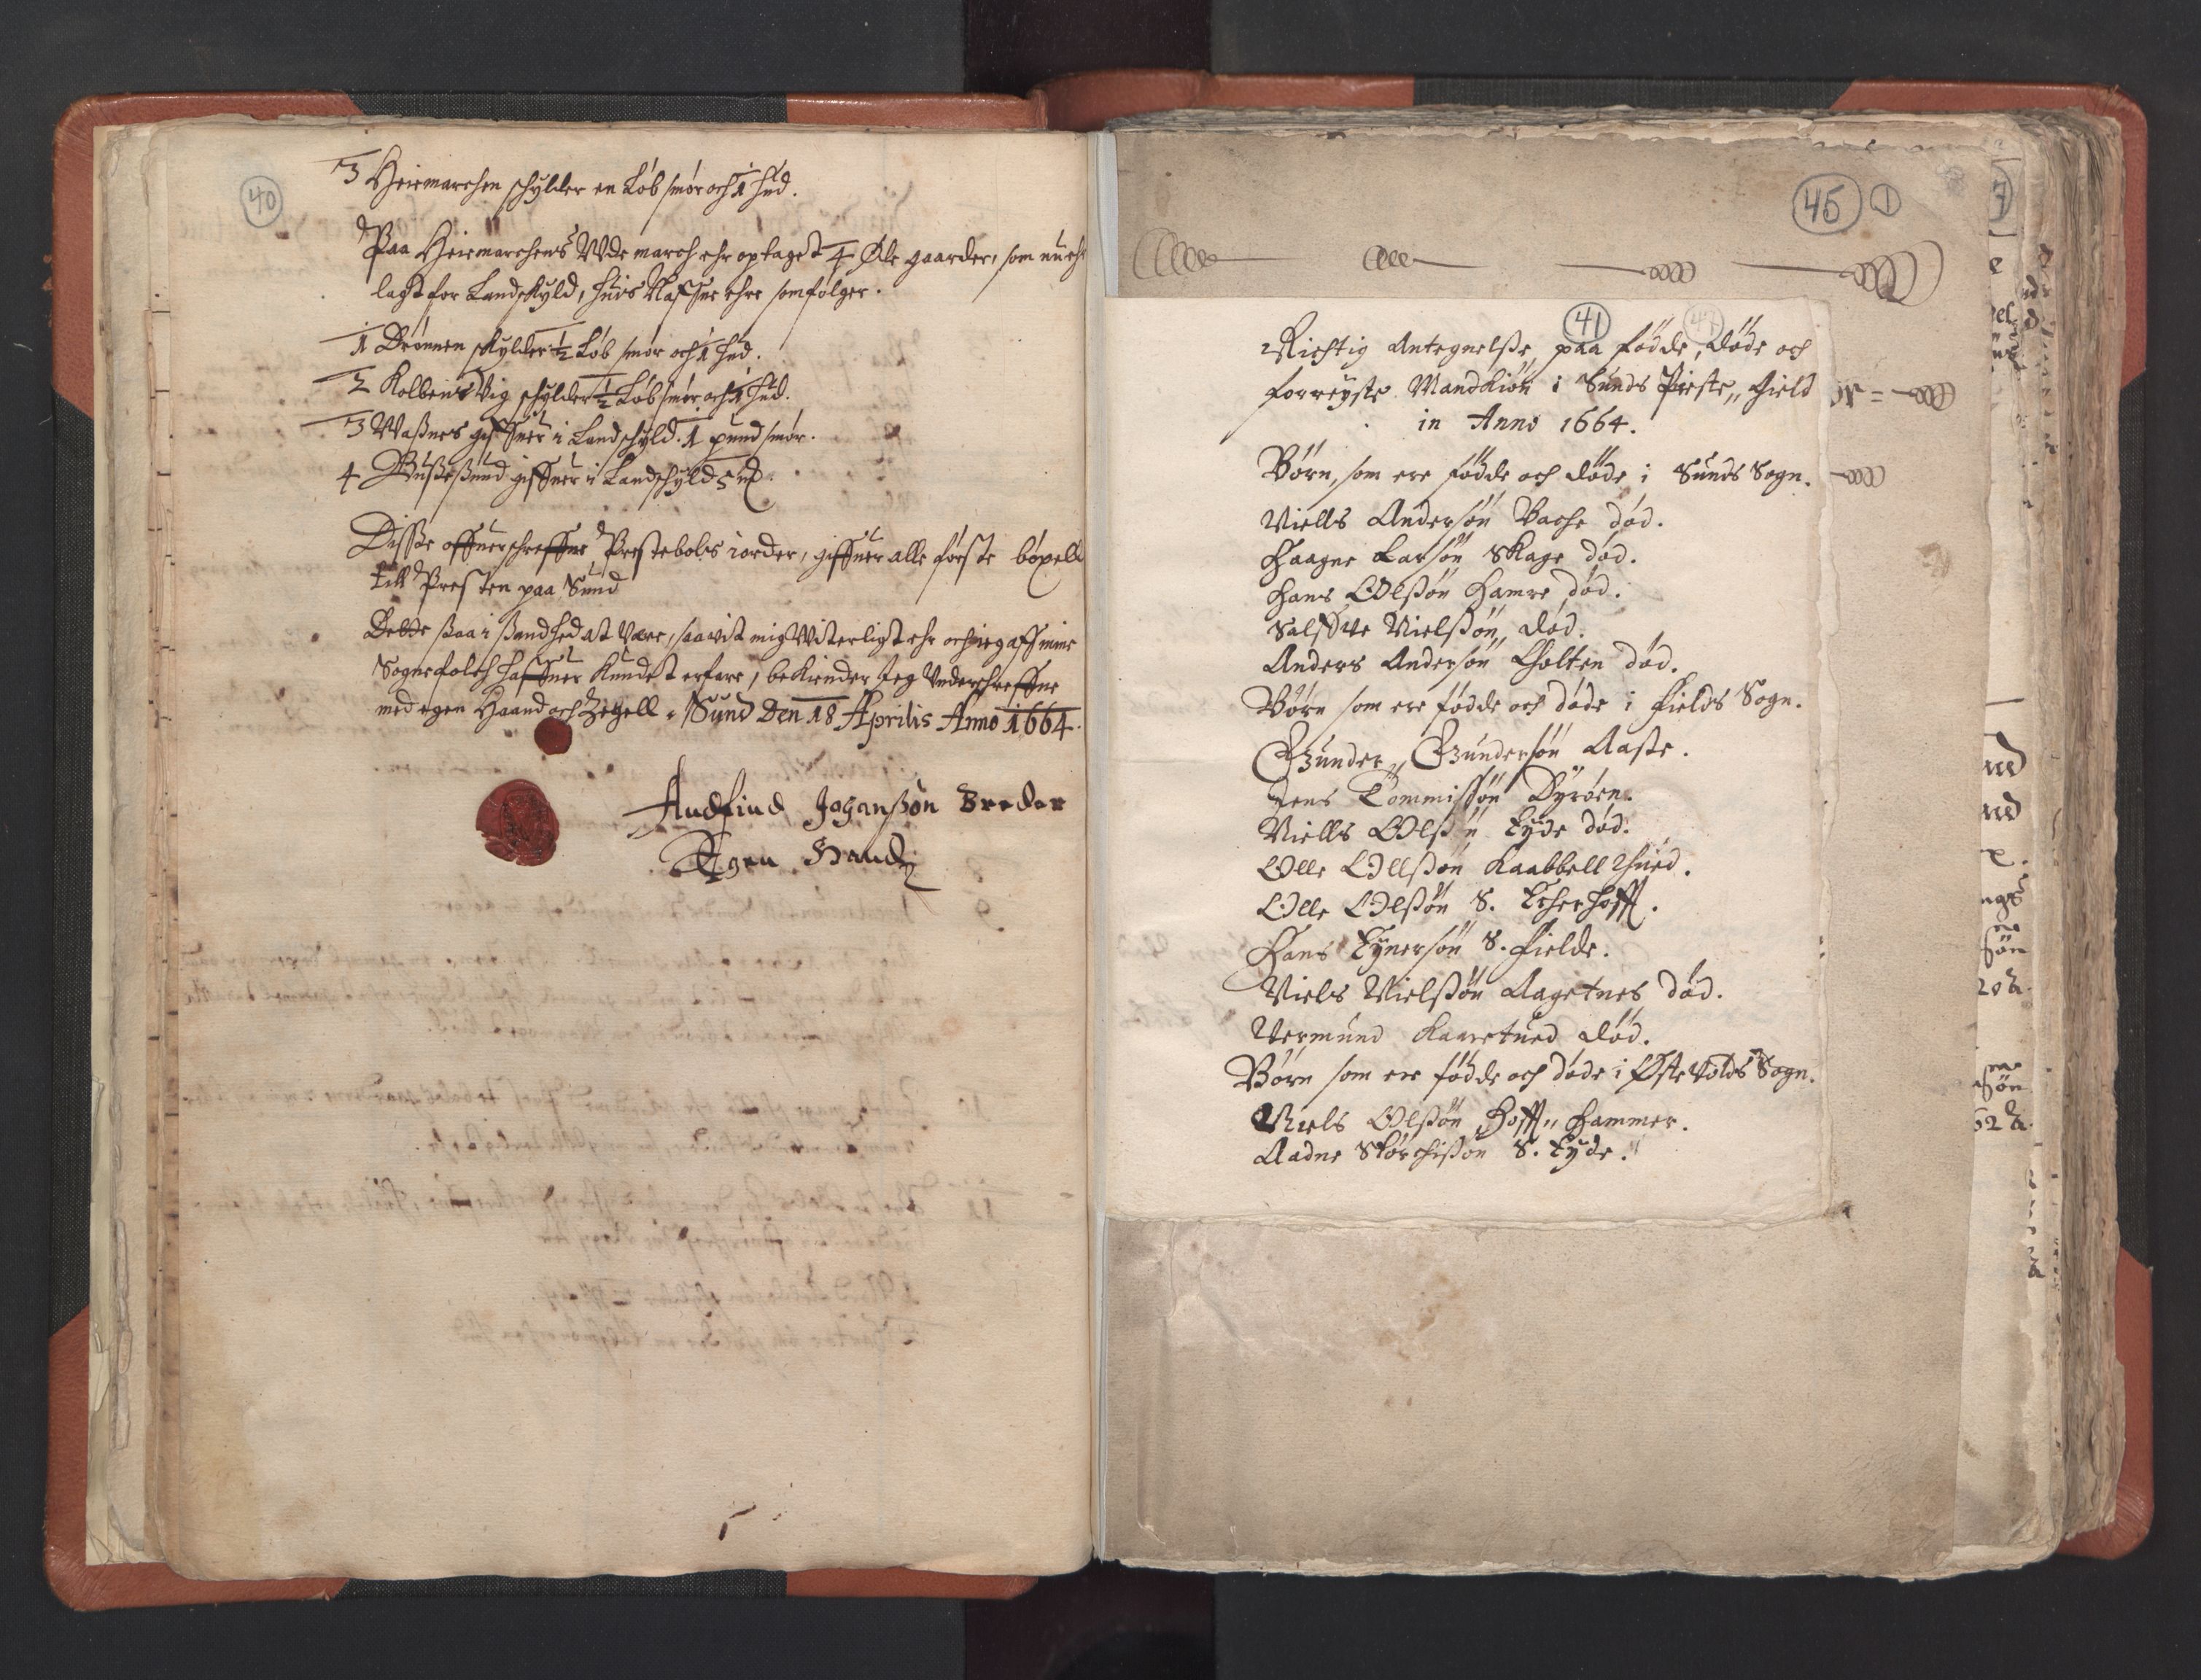 40
3 Heiemarchen schylder en Løb smør och 1 hud.
Paa Heiemarchens Vdmarch ehr optaget 4 Øde gaarder, som nu ehr
lagt for Landskyld, huis Naffne ehre som følger.
1 Drønnen skylder ½ Løb smør och 1 hud.
2 Kolbens Vig schylder ½ Løb smør och 1 hud.
3 Waßnes giffuer i Landschyld 1 pund smør.
4 Bußeßund giffuer i Landschyld
Disse offuerschreffne Prestebols iorder, giffuer alle første böxell
till Presten paa Sund
Dette ßaa i Sandhed at Være, saavit mig Witerligt ehr och ieg aff mine
Sognefolch haffuer Kundet erfare, bekiender Jeg Vnderschreffne
med egen Haand och Zegell. Sund Den 18 Aprilis Anno 1664.
Audfind Johanßøn Breder
Egen Handt
45 1
41
Richtig Antegnelße paa fødde, døde och
forreyste Mandkiön i Sunds Preste,, Gield
in Anno 1664.
Börn, som ere födde och döde i Sunds Sogn.
Niells Andersön Bache död.
Haagne Larsön Skage död.
Hans Olßön Hamre död.
Nielßön,, död.
Anders Andersön Tholten död.
Börn som ere födde och döde i Fields Sogn.
Gunder,, Gundersön Aaste.
Jens Tommissön Dyröen.
Niells Olßön Eyde död.
Olle Ollßön Kaabbell
Olle Olßön S. Echerhoff.
Hans Eynersön S. Fielde.
Niels Nielßön Aagetnes död.
Vermund död.
Börn som ere födde och döde i Østevolds Sogn.
Niels Olßön Hoff,, Hammer.
Aadne Störchißön S. Eyde.